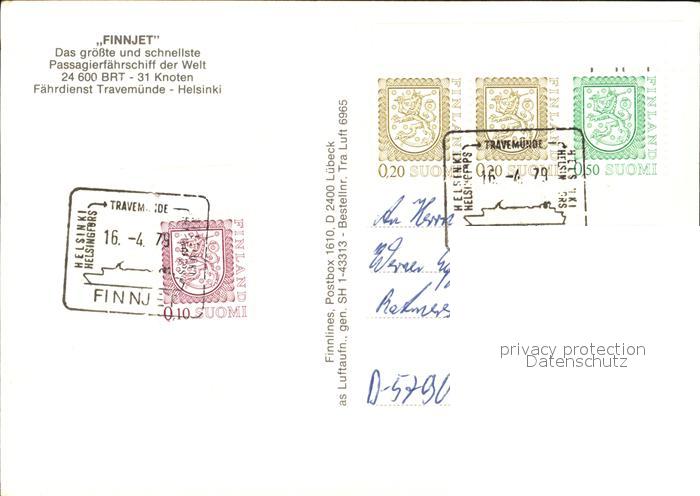 „FINNJET"
Das größte und schnellste
Passagierfährschiff der Welt
24 600 BRT - 31 Knoten
Fährdienst Travemünde - Helsinki
Finnlines, Postbox 1610, D 2400 Lübeck
as Luftaufn., gen. SH 1-43313 - Bestellnr. Tra Luft 6965
FINLAND
0,20 SUOMI
FINLAND
0,20 SUOMI
FINLAND
0,50 SUOMI
TRAVEMÜNDE
HELSINKI
HELSINGFORS
16. -4. 79
HELSINKI
TRAVEMÜNDE
HELSINKI
HELSINGFORS
16. -4. 79
FINNJE
FINLAND
0,10 SUOMI
An Herrn
Werner
D-5790
privacy protection
Datenschutz